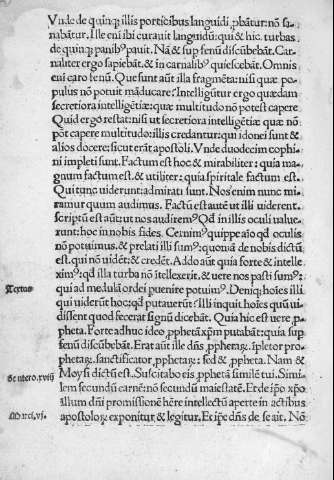 Vnde de quinq; illis porticibus languidi, ꝓbātur: nō sa-
nabātur. Ille eni ibi curauit languidū: qui & hic turbas
de quinq; panibꝰ pauit. Nā & sup fenū discūbebāt. Car-
naliter ergo sapiebāt, & in carnalibꝰ quiescebāt. Omnis
eni caro fenū. Que sunt aūt illa fragmēta: nisi quæ po-
pulus nō potuit māducare: Intelligūtur ergo quædam
secretiora intelligētiæ: quæ multitudo nō potest capere
Quid ergo restat: nisi ut secretiora intelligētiæ quæ nō
pōt capere multitudo: illis credantur: qui idonei sunt &
alios docere: sicut erāt apostoli. Vnde duodecim cophi-
ni impleti sunt. Factum est hoc & mirabiliter: quia ma-
gnum factum est. & utiliter: quia spiritale factum est.
Qui tunc uiderunt: admirati sunt. Nos enim nunc mi-
ramur quum audimus. Factū est aūt ut illi uiderent.
scriptū est aūt: ut nos audiremꝰ Qd in illis oculi value-
runt: hoc in nobis fides. Cernimꝰ quippe aio qd oculis
nō potuimus: & prelati illi sumꝰ: quoniā de nobis dictū
est. qui nō uidēt: & credēt. Addo aūt quia forte & intelle
ximꝰ: qd illa turba nō ītellexerit, & uere nos pasti sumꝰ:
Textus
qui ad medulā ordei puenire potuimꝰ. Deniq; hoīes illi
qui uiderūt hoc: qd putauerūt: Illi inquit hoīes quū ui-
dissent quod fecerat signū dicebāt. Quia hic est vere ꝓ-
pheta. Forte adhuc ideo ꝓphetā xpm putabāt: quia sup
fenū discūbebāt. Erat aūt ille dn̄s ꝓphetaꝝ. īpletor pro-
phetaꝝ. sanctificator ꝓphetaꝝ: sed & ꝓpheta. Nam &
Moysi dictū est. Suscitabo eis ꝓphetā similē tui. Simi-
lem secundū carnē: nō secundū maiestatē. Et de ip̄o xp̄o
illum dn̄i promissionē hēre intellectū aperte in actibus
apostoloꝝ exponitur & legitur. Et ip̄e dn̄s de se ait. Nō